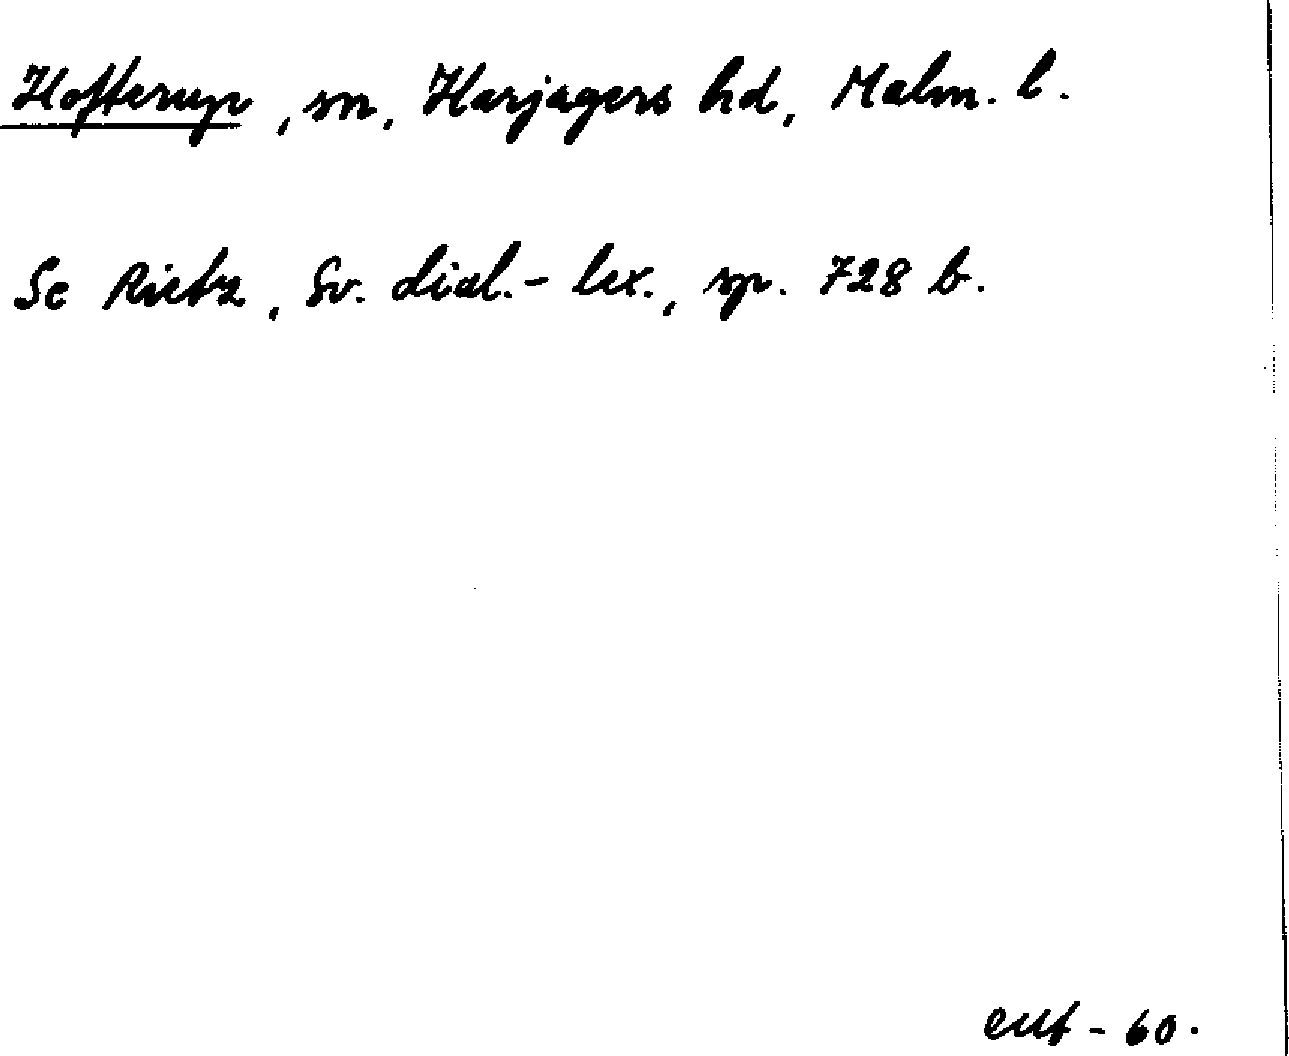 Hofterup, sn, Harjagers hd, Malm. l.
Se Rietz, Sv. dial.-lex., sp. 728 b.